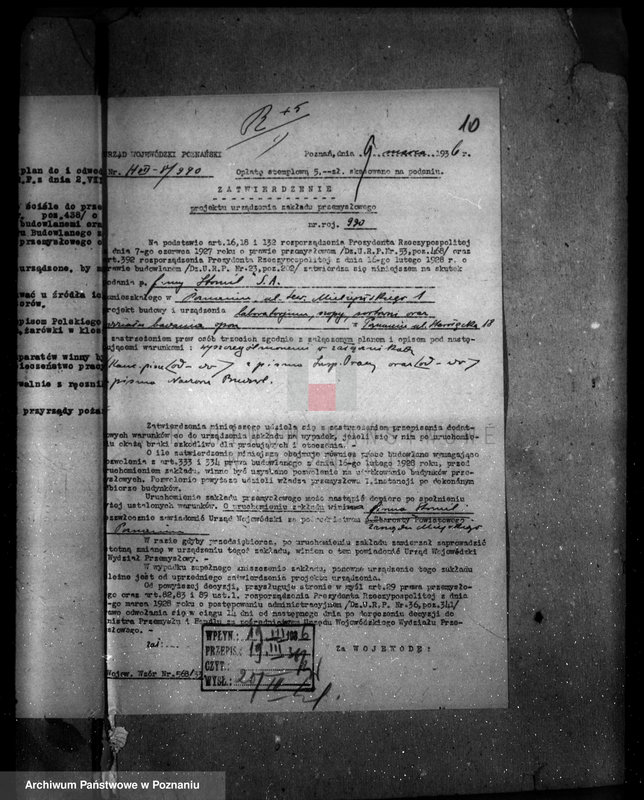 R
10
plan do i odwod
.P.z dnia 2.VII
URZĄD WOJEWÓDZKI POZNAŃSKI
Poznań, dnia 9 marca 1936 r.
Nr. 8/990
Opłatę stemplową 5.--zł. skasowano na podaniu.
ZATWIERDZENIE
projektu urządzenia zakładu przemysłowego
nr.rej. 990
ściśle do prze
poz.438/ o
budowlanemi ora
u Budowlanego z
przemysłowego o
Na podstawie art.16,18 i 132 rozporządzenia Prezydenta Rzeczypospolitej
dnia 7-go czerwca 1927 roku o prawie przemysłowem /Dz.U.R.P.Nr.53,poz.468/ oraz
art.392 rozporządzenia Prezydenta Rzeczypospolitej z dnia 16-go lutego 1928 r. o
prawie budowlanem /Dz.U.R.P. Nr.23,poz.202/ zatwierdza się niniejszem na skutek
podania p. firmy Stomil S.A.
zamieszkałego w Poznaniu, ul. Mielżyńskiego 1
projekt budowy i urządzenia laboratorjum, szopy, oraz
badania opon w Poznaniu ul. 18
z zastrzeżeniem praw osób trzecich zgodnie z załączonym planem i opisem pod nastę-
pującemi warunkami: wyszczególnionemi w
z pisma Insp. Pracy oraz
pisma
urządzone, by
wać u źródła
orów.
opisem Polskiego
żarówki w klos
paratów winny by
ieczeństwo pracy
walnie z ręczni
przyrządy pożar
Zatwierdzenia niniejszego udziela się z zastrzeżeniem przepisania dodat-
kowych warunków co do urządzenia zakładu na wypadek, jeżeli się w nim po uruchomie-
niu okażą braki szkodliwe dla pracujących i otoczenia. -
O ile zatwierdzenie niniejsze obejmuje również prace budowlane wymagające
pozwolenia z art.333 i 334 prawa budowlanego z dnia 16-go lutego 1928 roku, przed
uruchomieniem zakładu, winno być uzyskane pozwolenie na użytkowanie budynków prze-
mysłowych. Pozwolenie powyższe udzieli władza przemysłowa I.instancji po dokonanym
odbiorze budynków.
Uruchomienie zakładu przemysłowego może nastąpić dopiero po spełnieniu
wyżej ustalonych warunków. O uruchomieniu zakładu winna firma Stomil
bezzwłocznie zawiadomić Urząd Wojewódzki za pośrednictwem Starosty Powiatowego
Zarządu Miejskiego
Poznaniu
W razie gdyby przedsiębiorca, po uruchomieniu zakładu zamierzał zaprowadzić
istotną zmianę w urządzeniu tegoż zakładu, winien o tem powiadomić Urząd Wojewódzki
Wydział Przemysłowy. -
W wypadku zupełnego zniszczenia zakładu, ponowne urządzenie tego zakładu
zależne jest od uprzedniego zatwierdzenia projektu urządzenia.
Od powyższej decyzji, przysługuje stronie w myśl art.29 prawa przemysło-
wego oraz art.82,83 i 89 ust.1. rozporządzenia Prezydenta Rzeczypospolitej z dnia
-go marca 1928 roku o postępowaniu administracyjnem /Dz.U.R.P. Nr.36,poz.341/
prawo odwołania się w ciągu 14 dni od następnego dnia po doręczeniu decyzji do
Ministra Przemysłu i Handlu za pośrednictwem Urzędu Wojewódzkiego Wydziału Prze-
mysłowego. -
Za WOJEWODĘ:
WPŁYN.: 19 III 1936
PRZEPIS.: 19.III
CZYT.:
WYSŁ.: 20/III
Wojew. Wzór Nr.568/33
Archiwum Państwowe w Poznaniu